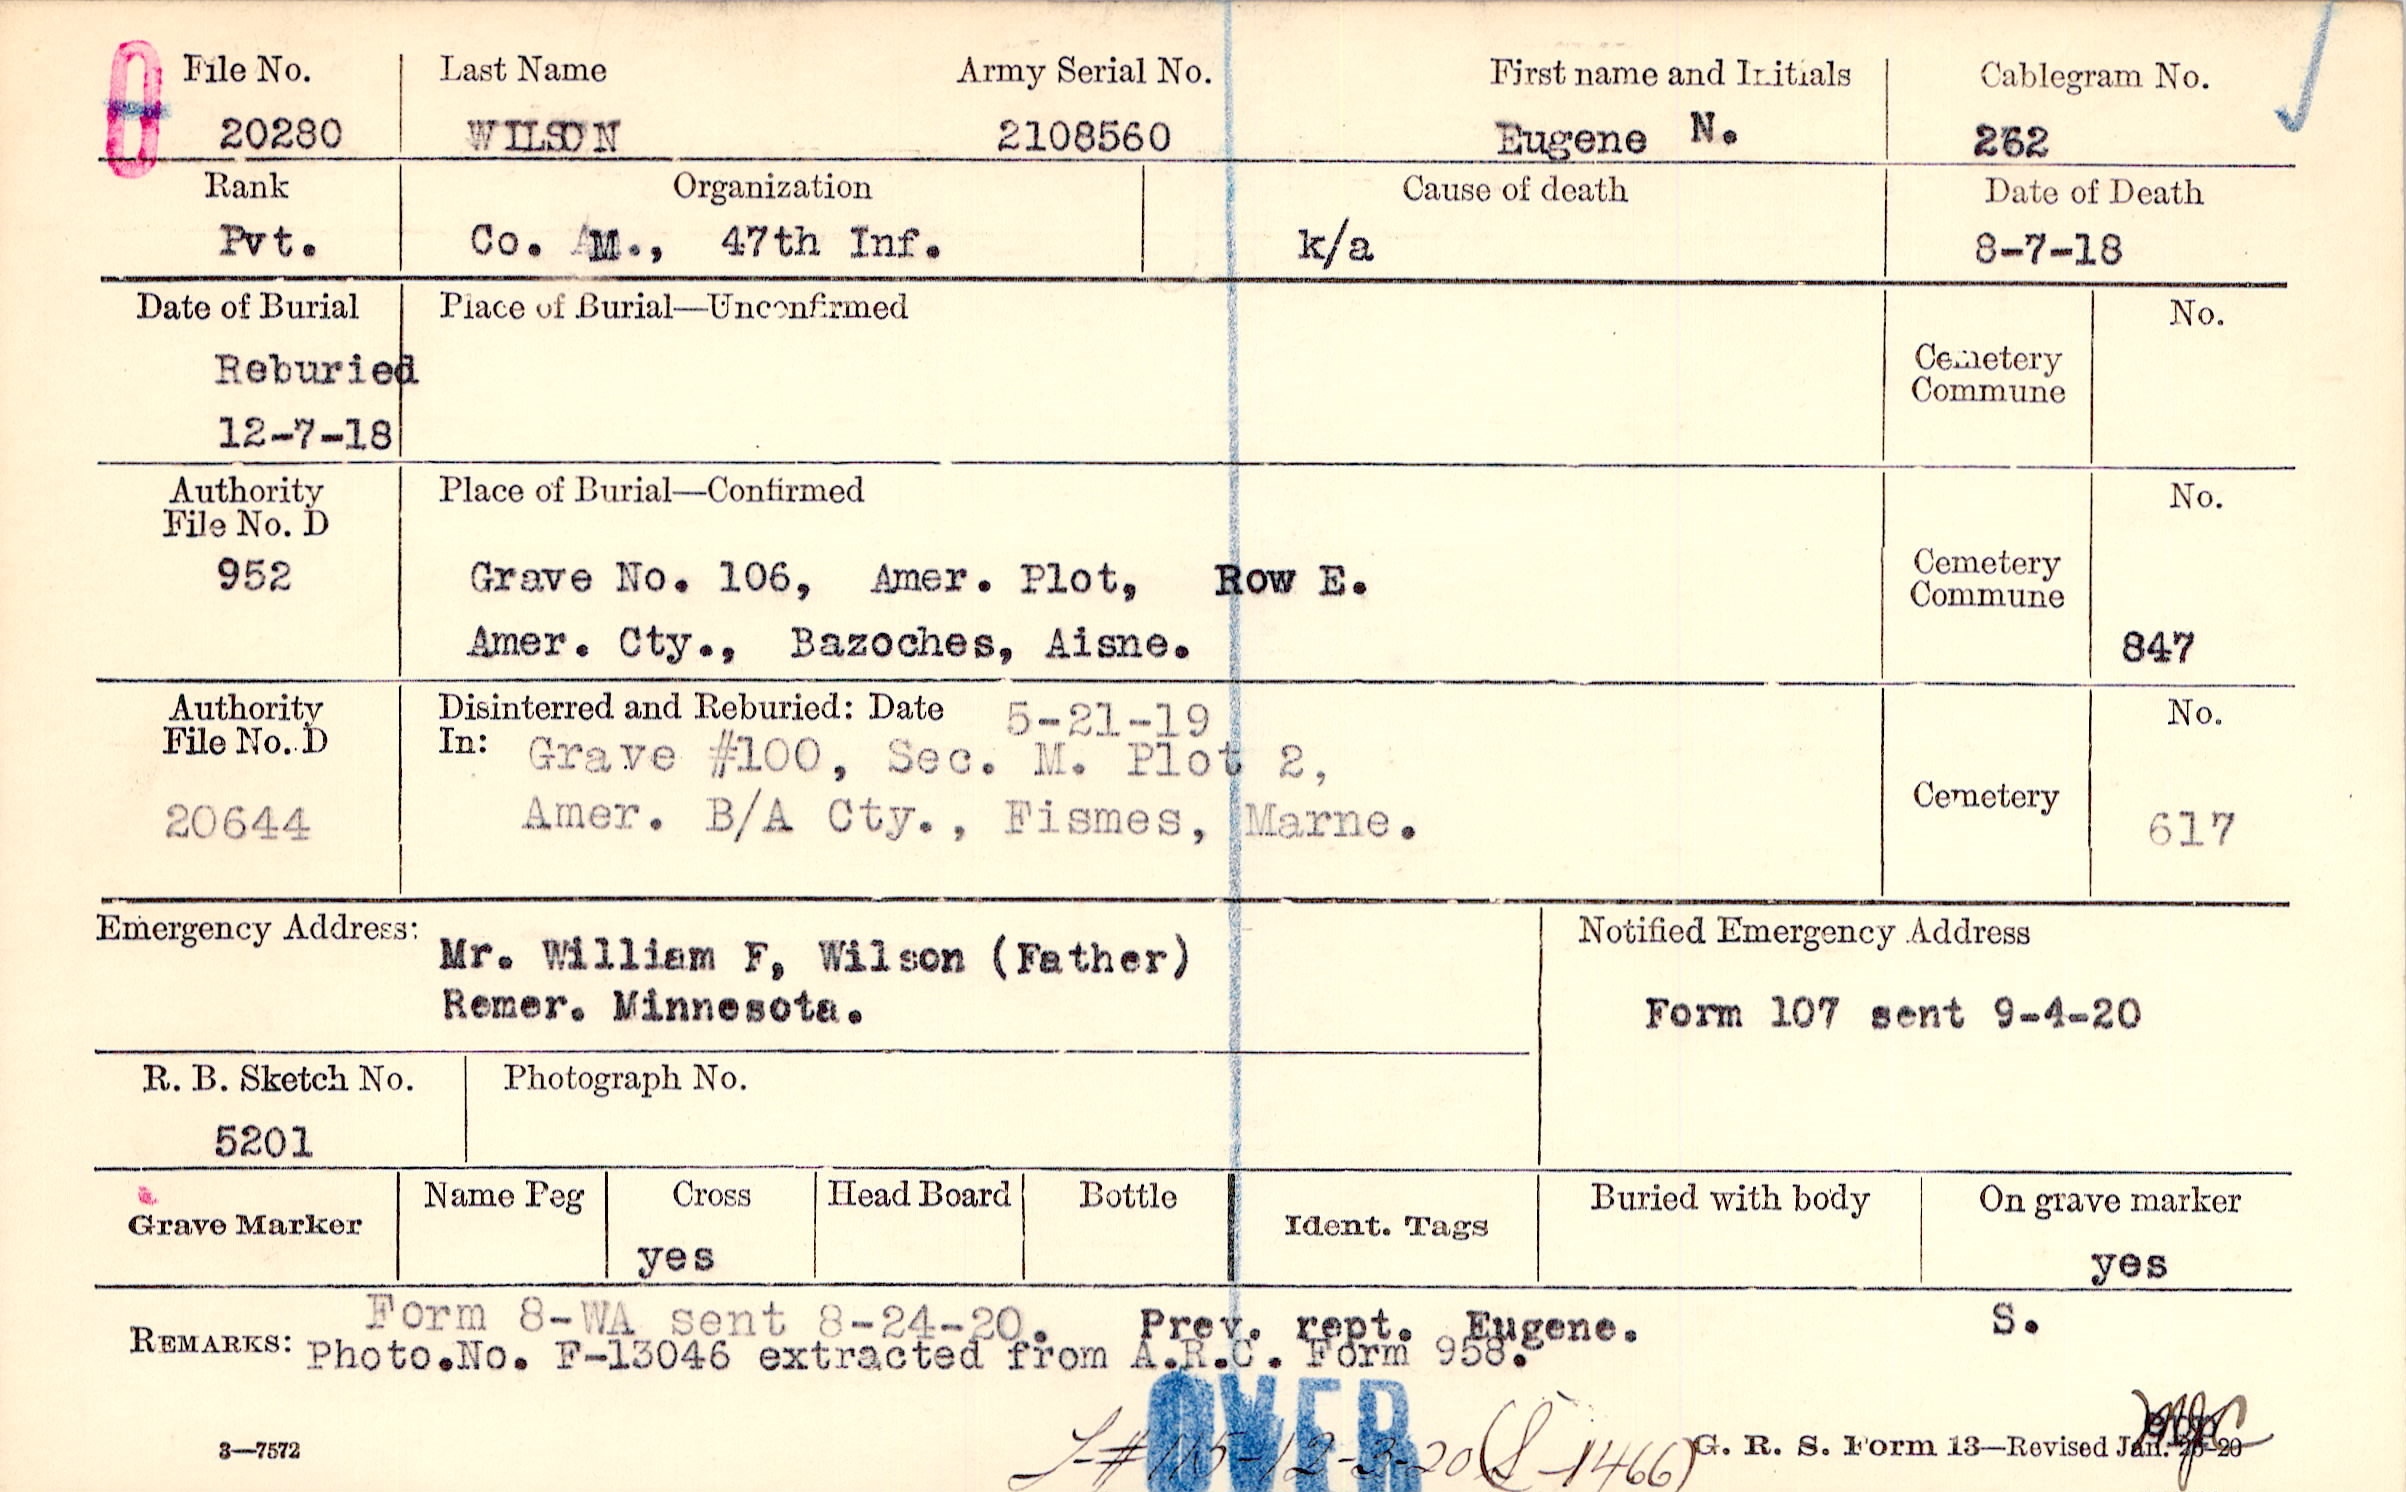 File No. Last Name Army Serial No. First name and Initials Cablegram No.
20280 WILSON 2108560 Eugene N. 262
Rank Organization Cause of death Date of Death
Pvt. Co. M., 47th Inf. k/a 8-7-18
Date of Burial Place of Burial—Unconfirmed No.
Reburied Cemetery
Commune
12-7-18
Authority Place of Burial—Confirmed No.
File No. D
952 Grave No. 106, Amer. Plot, Row E. Cemetery
Commune
Amer. Cty., Bazoches, Aisne. 847
Authority Disinterred and Reburied: Date 5-21-19 No.
File No. D In: Grave #100, Sec. M. Plot 2,
20644 Amer. B/A Cty., Fismes, Marne. Cemetery 617
Emergency Address: Notified Emergency Address
Mr. William F, Wilson (Father)
Remer. Minnesota. Form 107 sent 9-4-20
R. B. Sketch No. Photograph No.
5201
Grave Marker Name Peg Cross Head Board Bottle Ident. Tags Buried with body On grave marker
yes yes
Form 8-WA sent 8-24-20. Prev. rept. Eugene. S.
REMARKS: Photo.No. F-13046 extracted from A.R.C. Form 958.
OVER
#115-12-3-20 (L-1466)
3—7572 G. R. S. Form 13—Revised Jan. 26-20